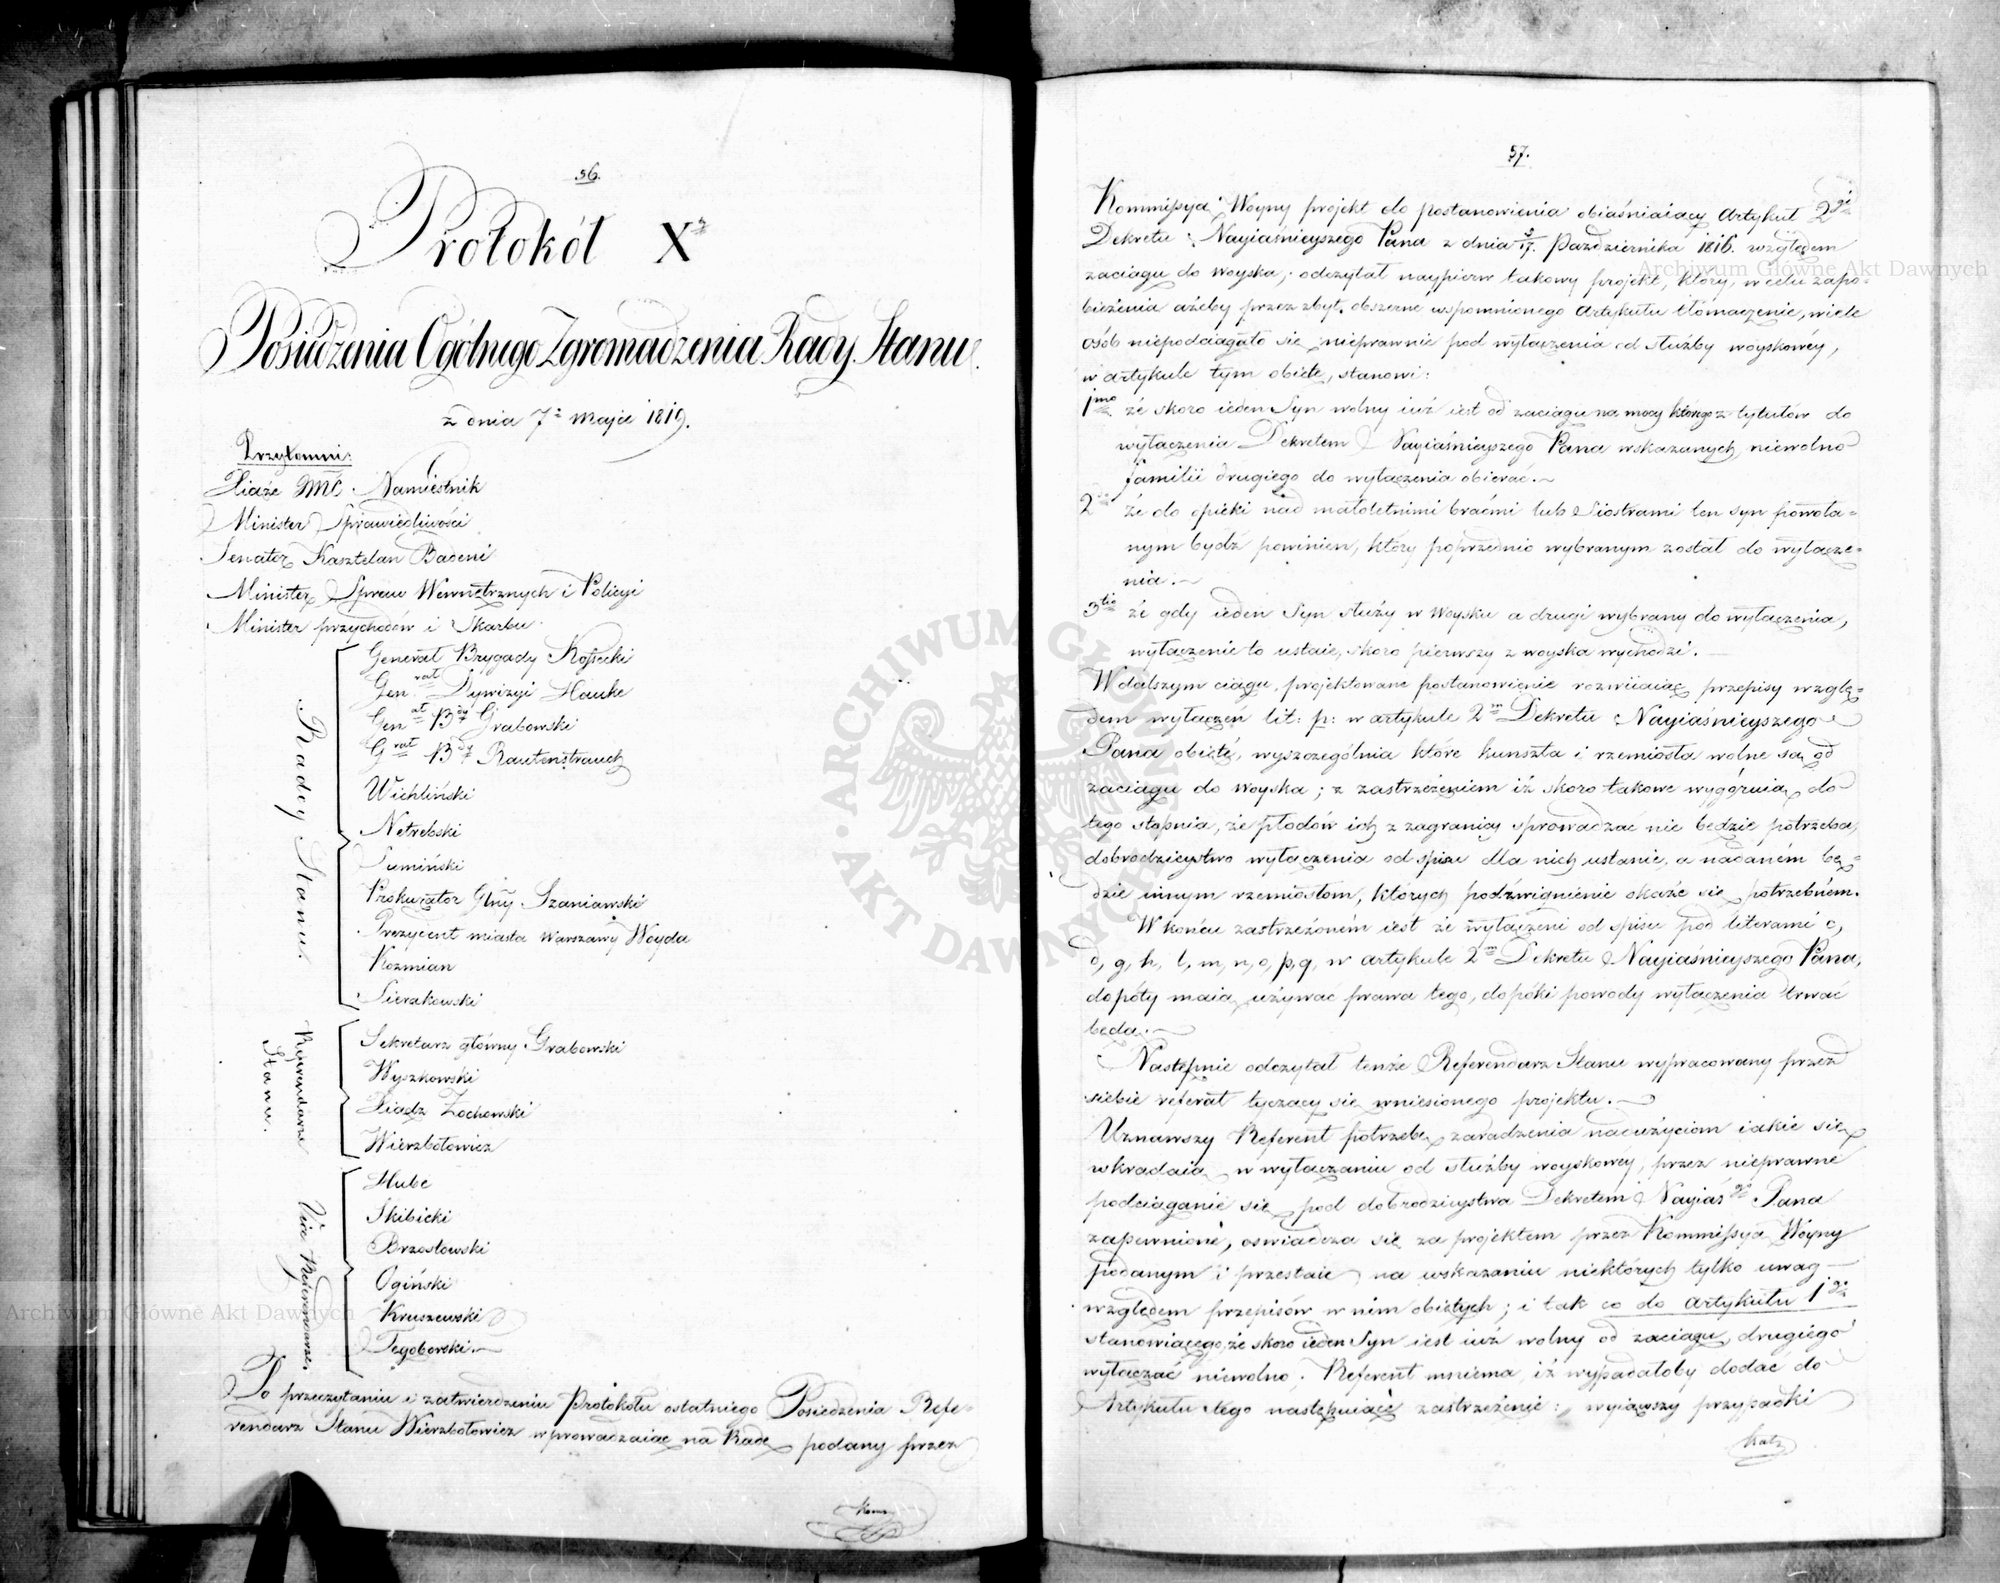 56.
Protokół X.
Posiedzenia Ogólnego Zgromadzenia Rady Stanu.
z dnia 7º Maja 1819.
Przytomni:
Xiaże JMC. Namiestnik
Minister Sprawiedliwości
Senator Kasztelan Badeni
Minister Spraw Wewnętrznych i Policyi
Minister przychodów i Skarbu.
Radcy Stanu.
Generał Brygady Kossecki
Gen.rał Dywizyi Hauke
Gen.ał B.dy Grabowski
G.rał B.dy Rautenstrauch
Wichliński
Netrebski
Sumiński
Prokurator Głny. Szaniawski
Prezydent miasta Warszawy Woyda
Kozmian
Sierakowski
Referendarze Stanu.
Sekretarz główny Grabowski
Wyszkowski
Xiądz Zochowski
Wierzbołowicz
Vice Referendarze.
Hube
Skibicki
Brzostowski
Ogiński
Kruszewski
Tęgoborski.
Po przeczytaniu i zatwierdzeniu Protokołu ostatniego Posiedzenia Refe-
rendarz Stanu Wierzbołowicz wprowadzaiąc na Radę podany przez
57.
Kommissyą Woyny projekt do postanowienia obiaśniaiący Artykuł 2gi
Dekretu Nayiaśnieyszego Pana z dnia 5/17. Pazdziernika 1816. względem
zaciągu do Woyska; odczytał naypierw takowy projekt, który, w celu zapo-
bieżenia ażeby przez zbyt obszerne wspomnionego Artykułu tłómaczenie, wiele
osób niepodciągało się nieprawnie pod wyłączenia od służby woyskowéy,
w artykule tym obięte, stanowi:
1mo że skoro ieden Syn wolny iuż iest od zaciągu na mocy którego z tytułów do
wyłączenia Dekretem Nayiaśnieyszego Pana wskazanych, niewolno
familii drugiego do wyłączenia obierać.
2do że do opieki nad małoletnimi braćmi lub Siostrami ten syn powoła-
nym bydź powinien, który poprzednio wybranym został do wyłącze-
nia.
3tio że gdy ieden Syn służy w Woysku a drugi wybrany do wyłączenia,
wyłączenie to ustaie, skoro pierwszy z woyska wychodzi.
W dalszym ciągu, projektowane postanowienie rozwiiaiąc przepisy wzglę-
dem wyłączeń lit: p: w artykule 2m Dekretu Nayiaśnieyszego
Pana obięté, wyszczególnia które kunszta i rzemiosła wolne są od
zaciągu do Woyska; z zastrzeżeniem iż skoro takowe wygórnią do
tego stopnia, że płodów ich z zagranicy sprowadzać nie będzie potrzeba,
dobrodzieystwo wyłączenia od spisu dla nich ustanie, a nadaném bę-
dzie innym rzemiosłom, których podźwignienie okaże się potrzebném.
W końcu zastrzeżoném iest że wyłączeni od spisu pod literami c,
d, g, h, l, m, n, o, p, q, w artykule 2m Dekretu Nayiaśnieyszego Pana,
dopóty maią używać prawa tego, dopóki powody wyłączenia trwać
będą.
Następnie odczytał tenże Referendarz Stanu wypracowany przez
siebie referat tyczący się wniesionego projektu.
Uznawszy Referent potrzebę zaradzenia nadużyciom iakie się
wkradaią w wyłączaniu od służby woyskowey, przez nieprawne
podciąganie się pod dobrodzieystwa Dekretem Nayiaśgo Pana
zapewnione, oświadcza się za projektem przez Kommissyą Woyny
podanym i przestaie na wskazaniu niektórych tylko uwag
względem przepisów w nim obiętych; i tak co do Artykułu 1go
stanowiącego, że skoro ieden Syn iest iuż wolny od zaciągu, drugiego
wyłączać niewolno; Referent mniema, iż wypadałoby dodać do
Artykułu tego następuiące zastrzeżenie: „wyiąwszy przypadki
Archiwum Główne Akt Dawnych
Archiwum Główne Akt Dawnych
ARCHIWUM GŁÓWNE AKT DAWNYCH